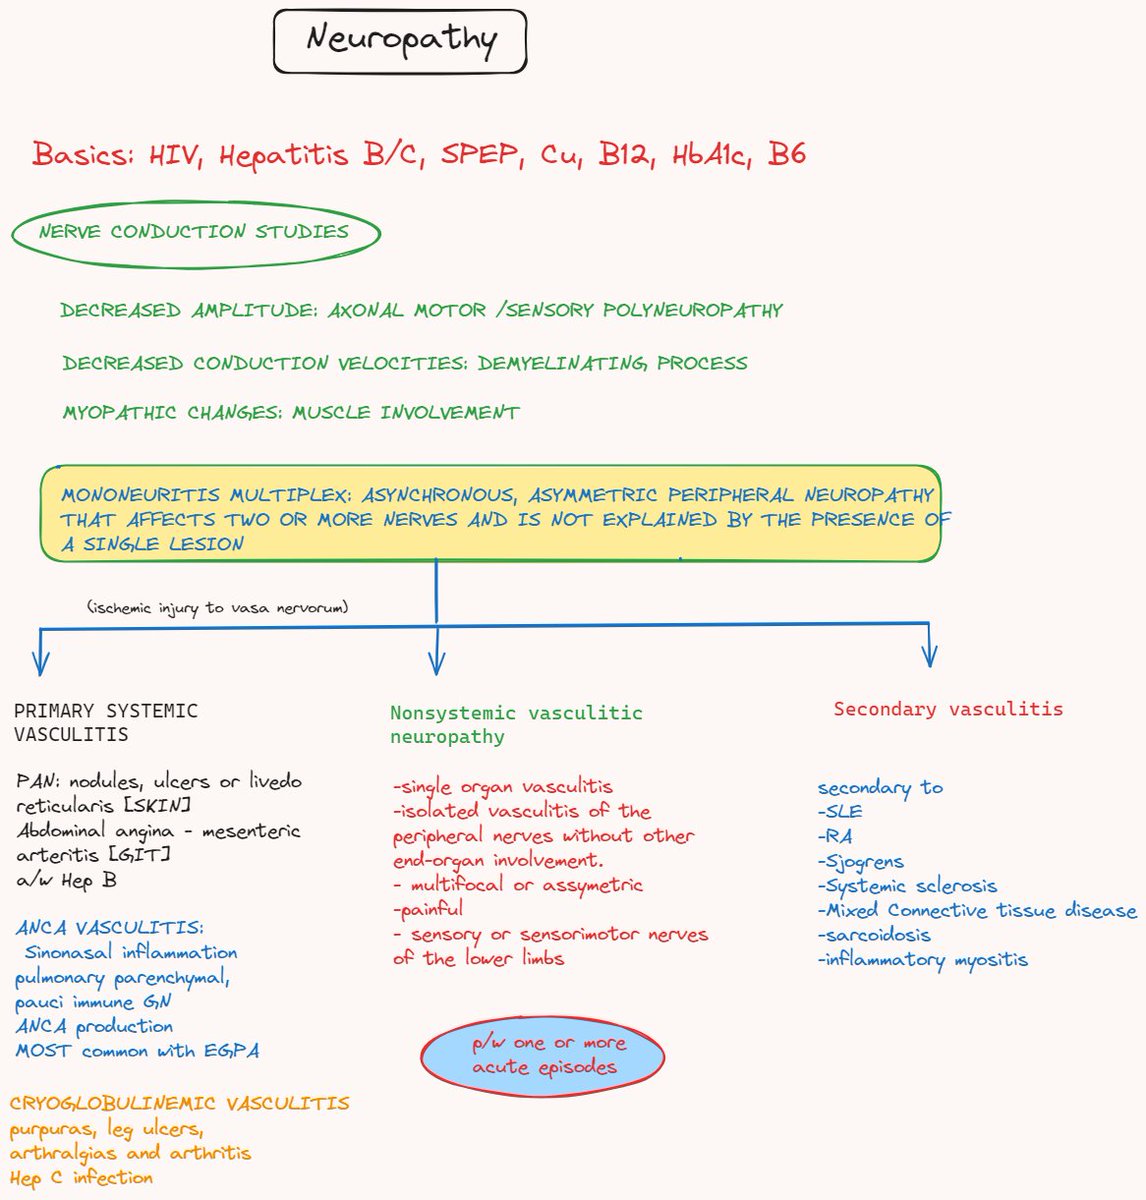 Neuropathy
Basics: HIV, Hepatitis B/C, SPEP, Cu, B12, HbA1c, B6
NERVE CONDUCTION STUDIES
DECREASED AMPLITUDE: AXONAL MOTOR /SENSORY POLYNEUROPATHY
DECREASED CONDUCTION VELOCITIES: DEMYELINATING PROCESS
MYOPATHIC CHANGES: MUSCLE INVOLVEMENT
MONONEURITIS MULTIPLEX: ASYNCHRONOUS, ASYMMETRIC PERIPHERAL NEUROPATHY
THAT AFFECTS TWO OR MORE NERVES AND IS NOT EXPLAINED BY THE PRESENCE OF
A SINGLE LESION
(ischemic injury to vasa nervorum)
PRIMARY SYSTEMIC
VASCULITIS
PAN: nodules, ulcers or livedo
reticularis [SKIN]
Abdominal angina - mesenteric
arteritis [GIT]
a/w Hep B
ANCA VASCULITIS:
Sinonasal inflammation
pulmonary parenchymal,
pauci immune GN
ANCA production
MOST common with EGPA
CRYOGLOBULINEMIC VASCULITIS
purpuras, leg ulcers,
arthralgias and arthritis
Hep C infection
Nonsystemic vasculitic
neuropathy
-single organ vasculitis
-isolated vasculitis of the
peripheral nerves without other
end-organ involvement.
- multifocal or assymetric
-painful
- sensory or sensorimotor nerves
of the lower limbs
p/w one or more
acute episodes
Secondary vasculitis
secondary to
-SLE
-RA
-Sjogrens
-Systemic sclerosis
-Mixed Connective tissue disease
-sarcoidosis
-inflammatory myositis